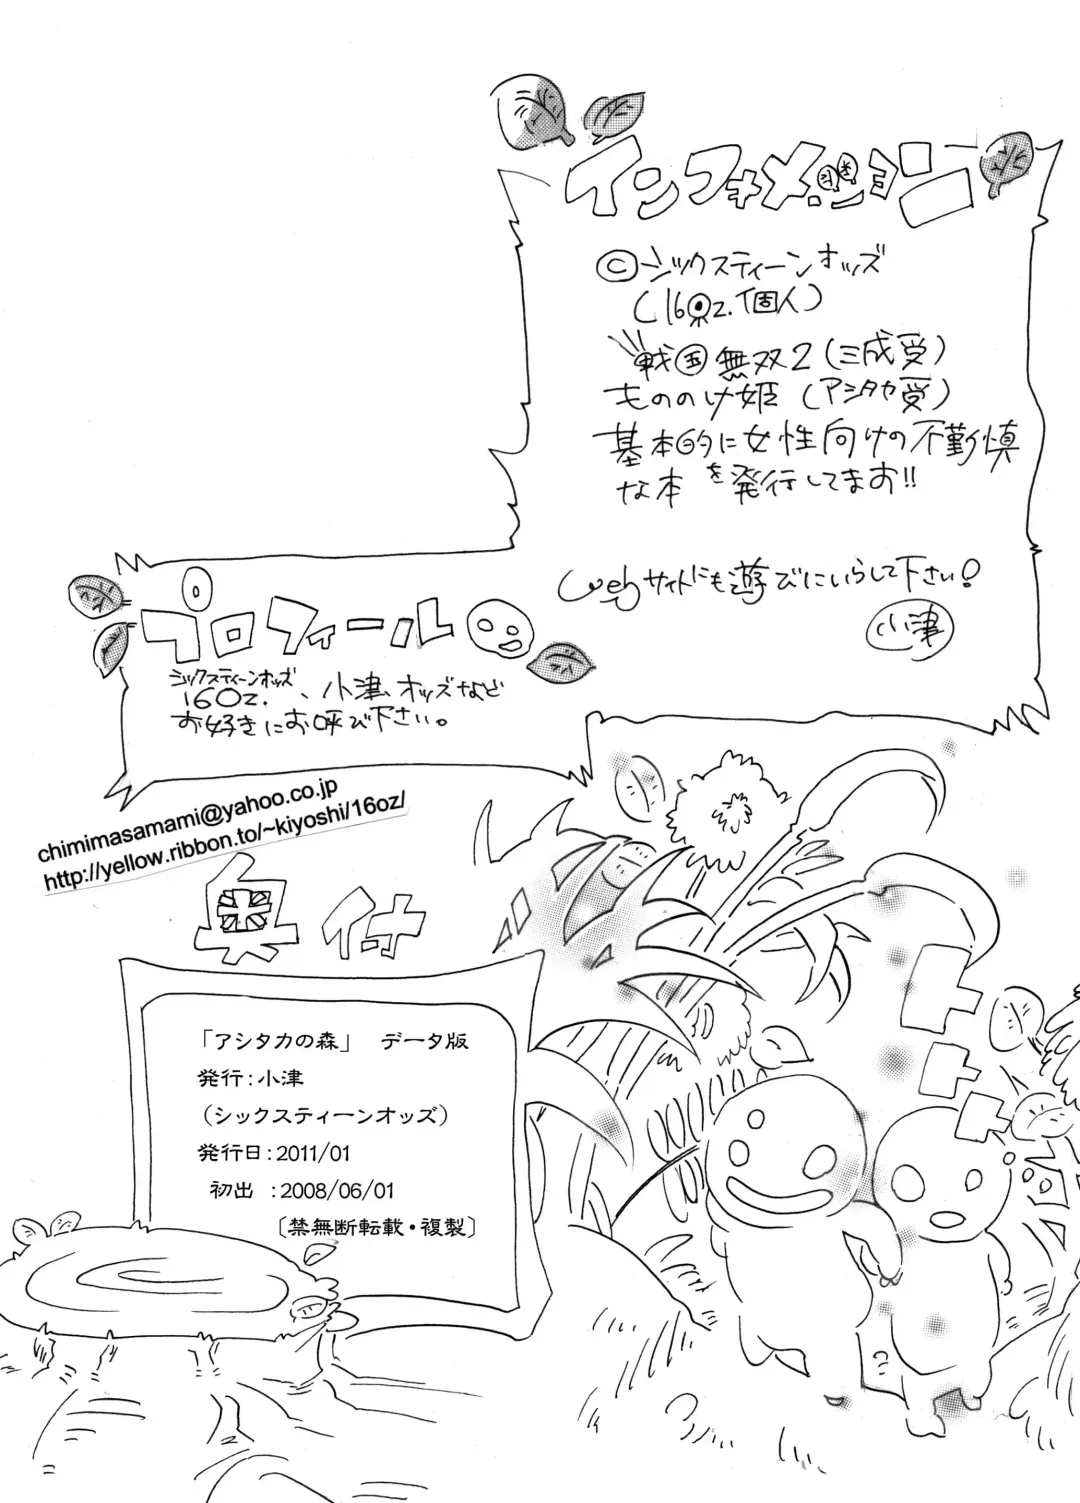 インフォメーション
©シックスティーンオッズ
（16oz.個人）
戦国無双2（三成受）
もののけ姫（アシタカ受）
基本的に女性向けの不勤慎
な本を発行してます!!
webサイトにも遊びにいらして下さい！
小津
プロフィール
シックスティーンオッズ
16oz.、小津、オッズなど
お好きにお呼び下さい。
chimimasamami@yahoo.co.jp
http://yellow.ribbon.to/~kiyoshi/16oz/
奥付
「アシタカの森」　データ版
発行：小津
（シックスティーンオッズ）
発行日：2011/01
初出　：2008/06/01
〔禁無断転載・複製〕
トコトコ